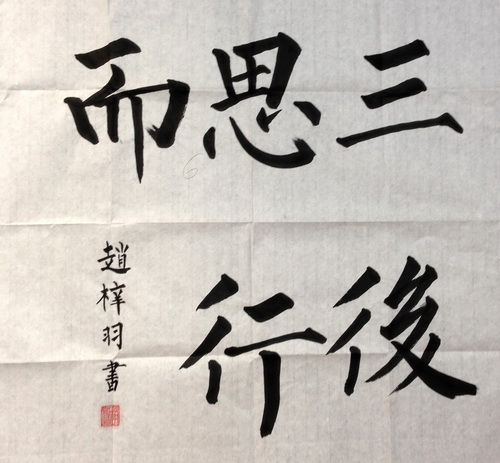 三思而
後行
趙梓羽書